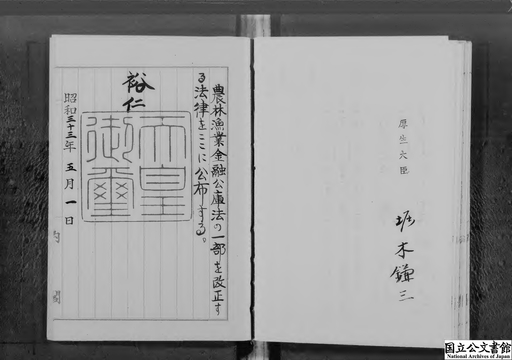 厚生大臣
堀木鎌三
農林漁業金融公庫法の一部を改正す
る法律をここに公布する。
裕仁
天皇
御璽
昭和三十三年五月一日
国立公文書館
National Archives of Japan